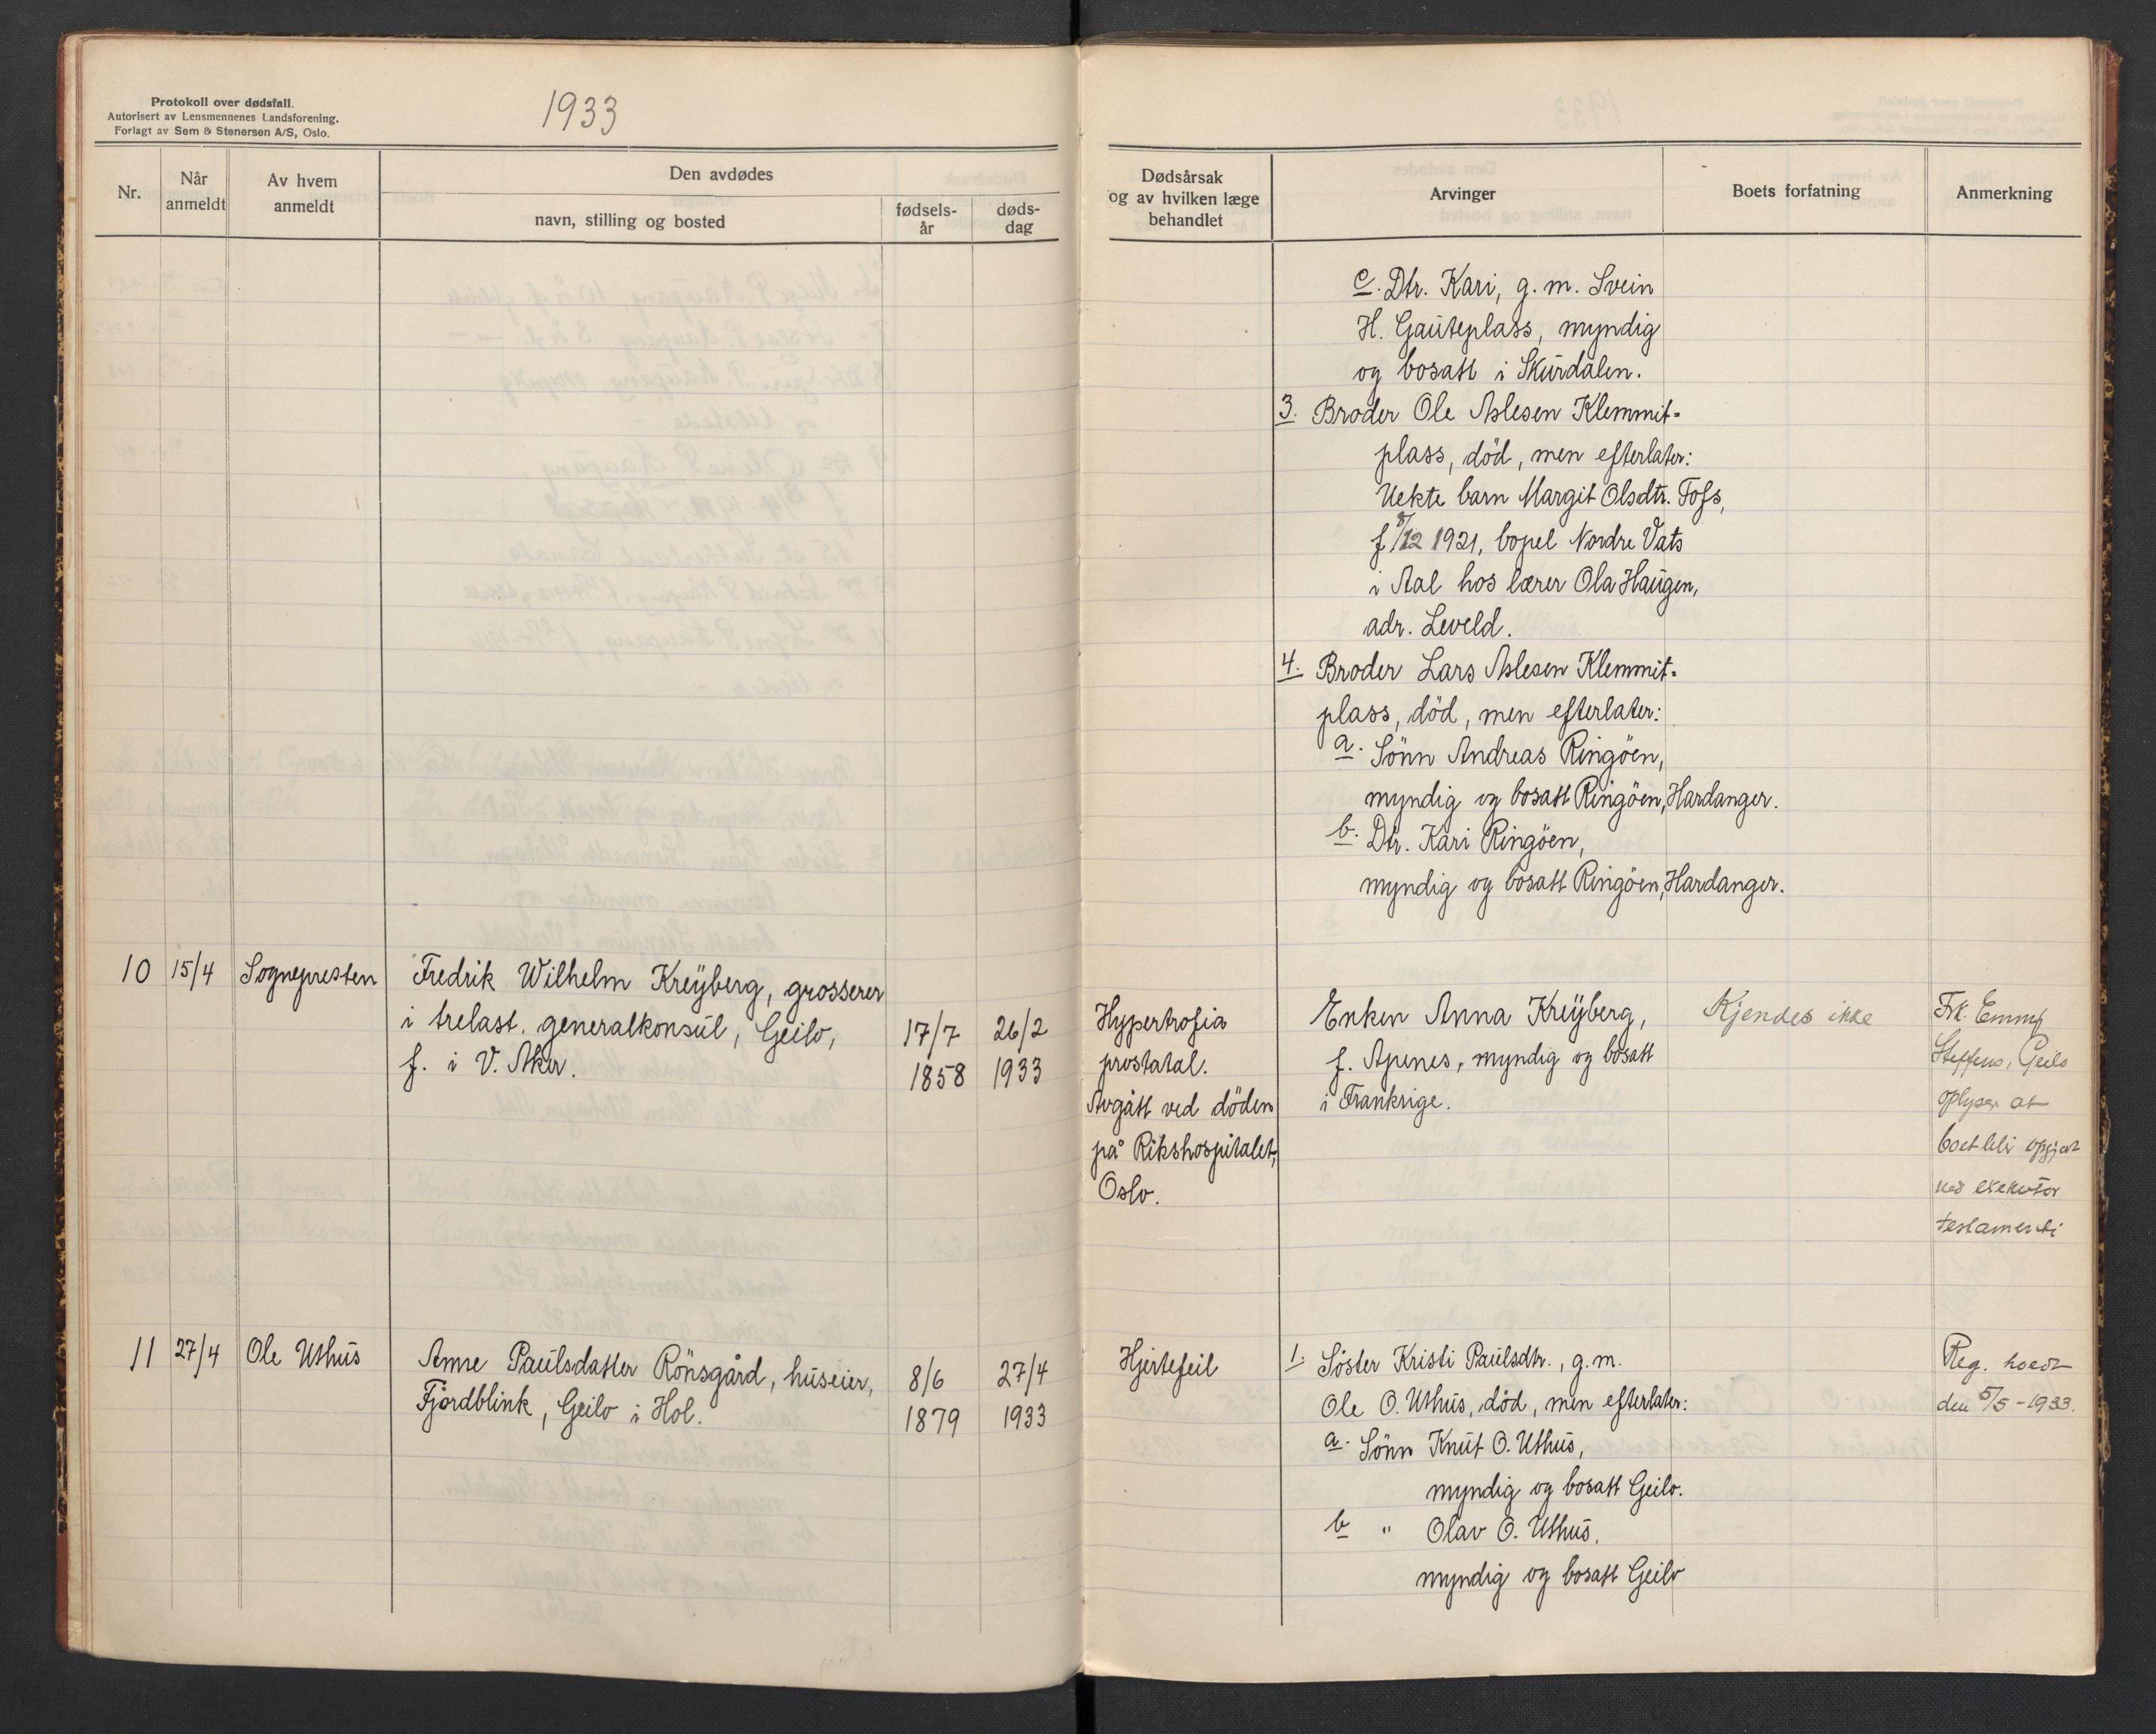 Protokoll over dødsfall.
Autorisert av Lensmennenes Landsforening.
Forlagt av Sem & Stenersen A/S, Oslo.
1933
Nr.
Når anmeldt
Av hvem anmeldt
Den avdødes
navn, stilling og bosted
fødsels-år
døds-dag
Dødsårsak og av hvilken læge behandlet
Arvinger
Boets forfatning
Anmerkning
c. Dtr. Kari, g. m. Svein
H. Gauteplass, myndig
og bosatt i Skurdalen.
3. Broder Ole Aslesen Klemmit-
plass, död, men efterlater:
Uekte barn Margit Olsdtr. Tofs,
f 8/12 1921, bopel Nordre Vats
i Aal hos lærer Ola Haugen,
adr. Leveld.
4. Broder Lars Aslesen Klemmit-
plass, död, men efterlater:
a. Sönn Andreas Ringöen,
myndig og bosatt Ringöen, Hardanger.
b. Dtr. Kari Ringöen,
myndig og bosatt Ringöen, Hardanger.
10 15/4 Sognepresten
Fredrik Wilhelm Kreÿberg, grosserer
i trelast. generalkonsul, Geilo,
f. i V. Aker.
17/7
1858
26/2
1933
Hypertrofia
prostatal.
Avgått ved döden
på Rikshospitalet,
Oslo.
Enken Anna Kreÿberg,
f. Apenes, myndig og bosatt
i Frankrige.
Kjendes ikke
Frk. Emmy
Steffens, Geilo
oplyser at
boet blir opgjort
ved executor
testamenti
11 27/4 Ole Uthus
Anne Paulsdatter Rönsgård, huseier,
Fjordblink, Geilo i Hol.
8/6
1879
27/4
1933
Hjertefeil
1. Söster Kristi Paulsdtr., g. m.
Ole O. Uthus, död, men efterlater:
a. Sönn Knut O. Uthus,
myndig og bosatt Geilo.
b " Olav O. Uthus.
myndig og bosatt Geilo
Reg. holdt
den 5/5 - 1933.